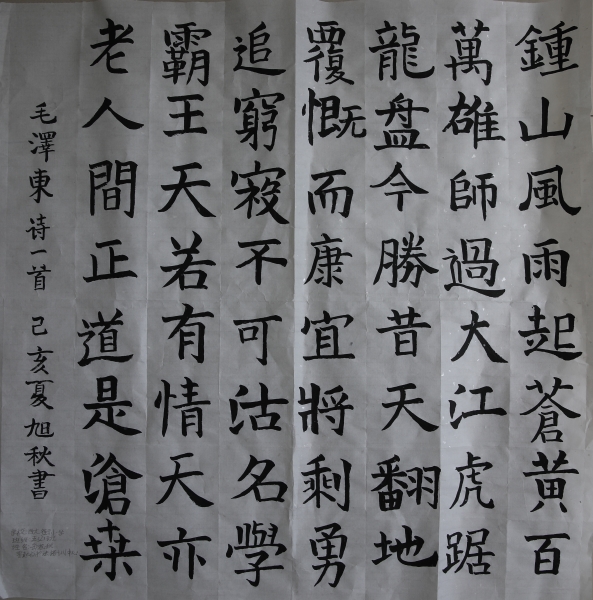 鍾山風雨起蒼黃百
萬雄師過大江虎踞
龍盘今勝昔天翻地
覆慨而康宜將剩勇
追窮寇不可沽名學
霸王天若有情天亦
老人間正道是滄桒
毛澤東诗一首 己亥夏旭秋書